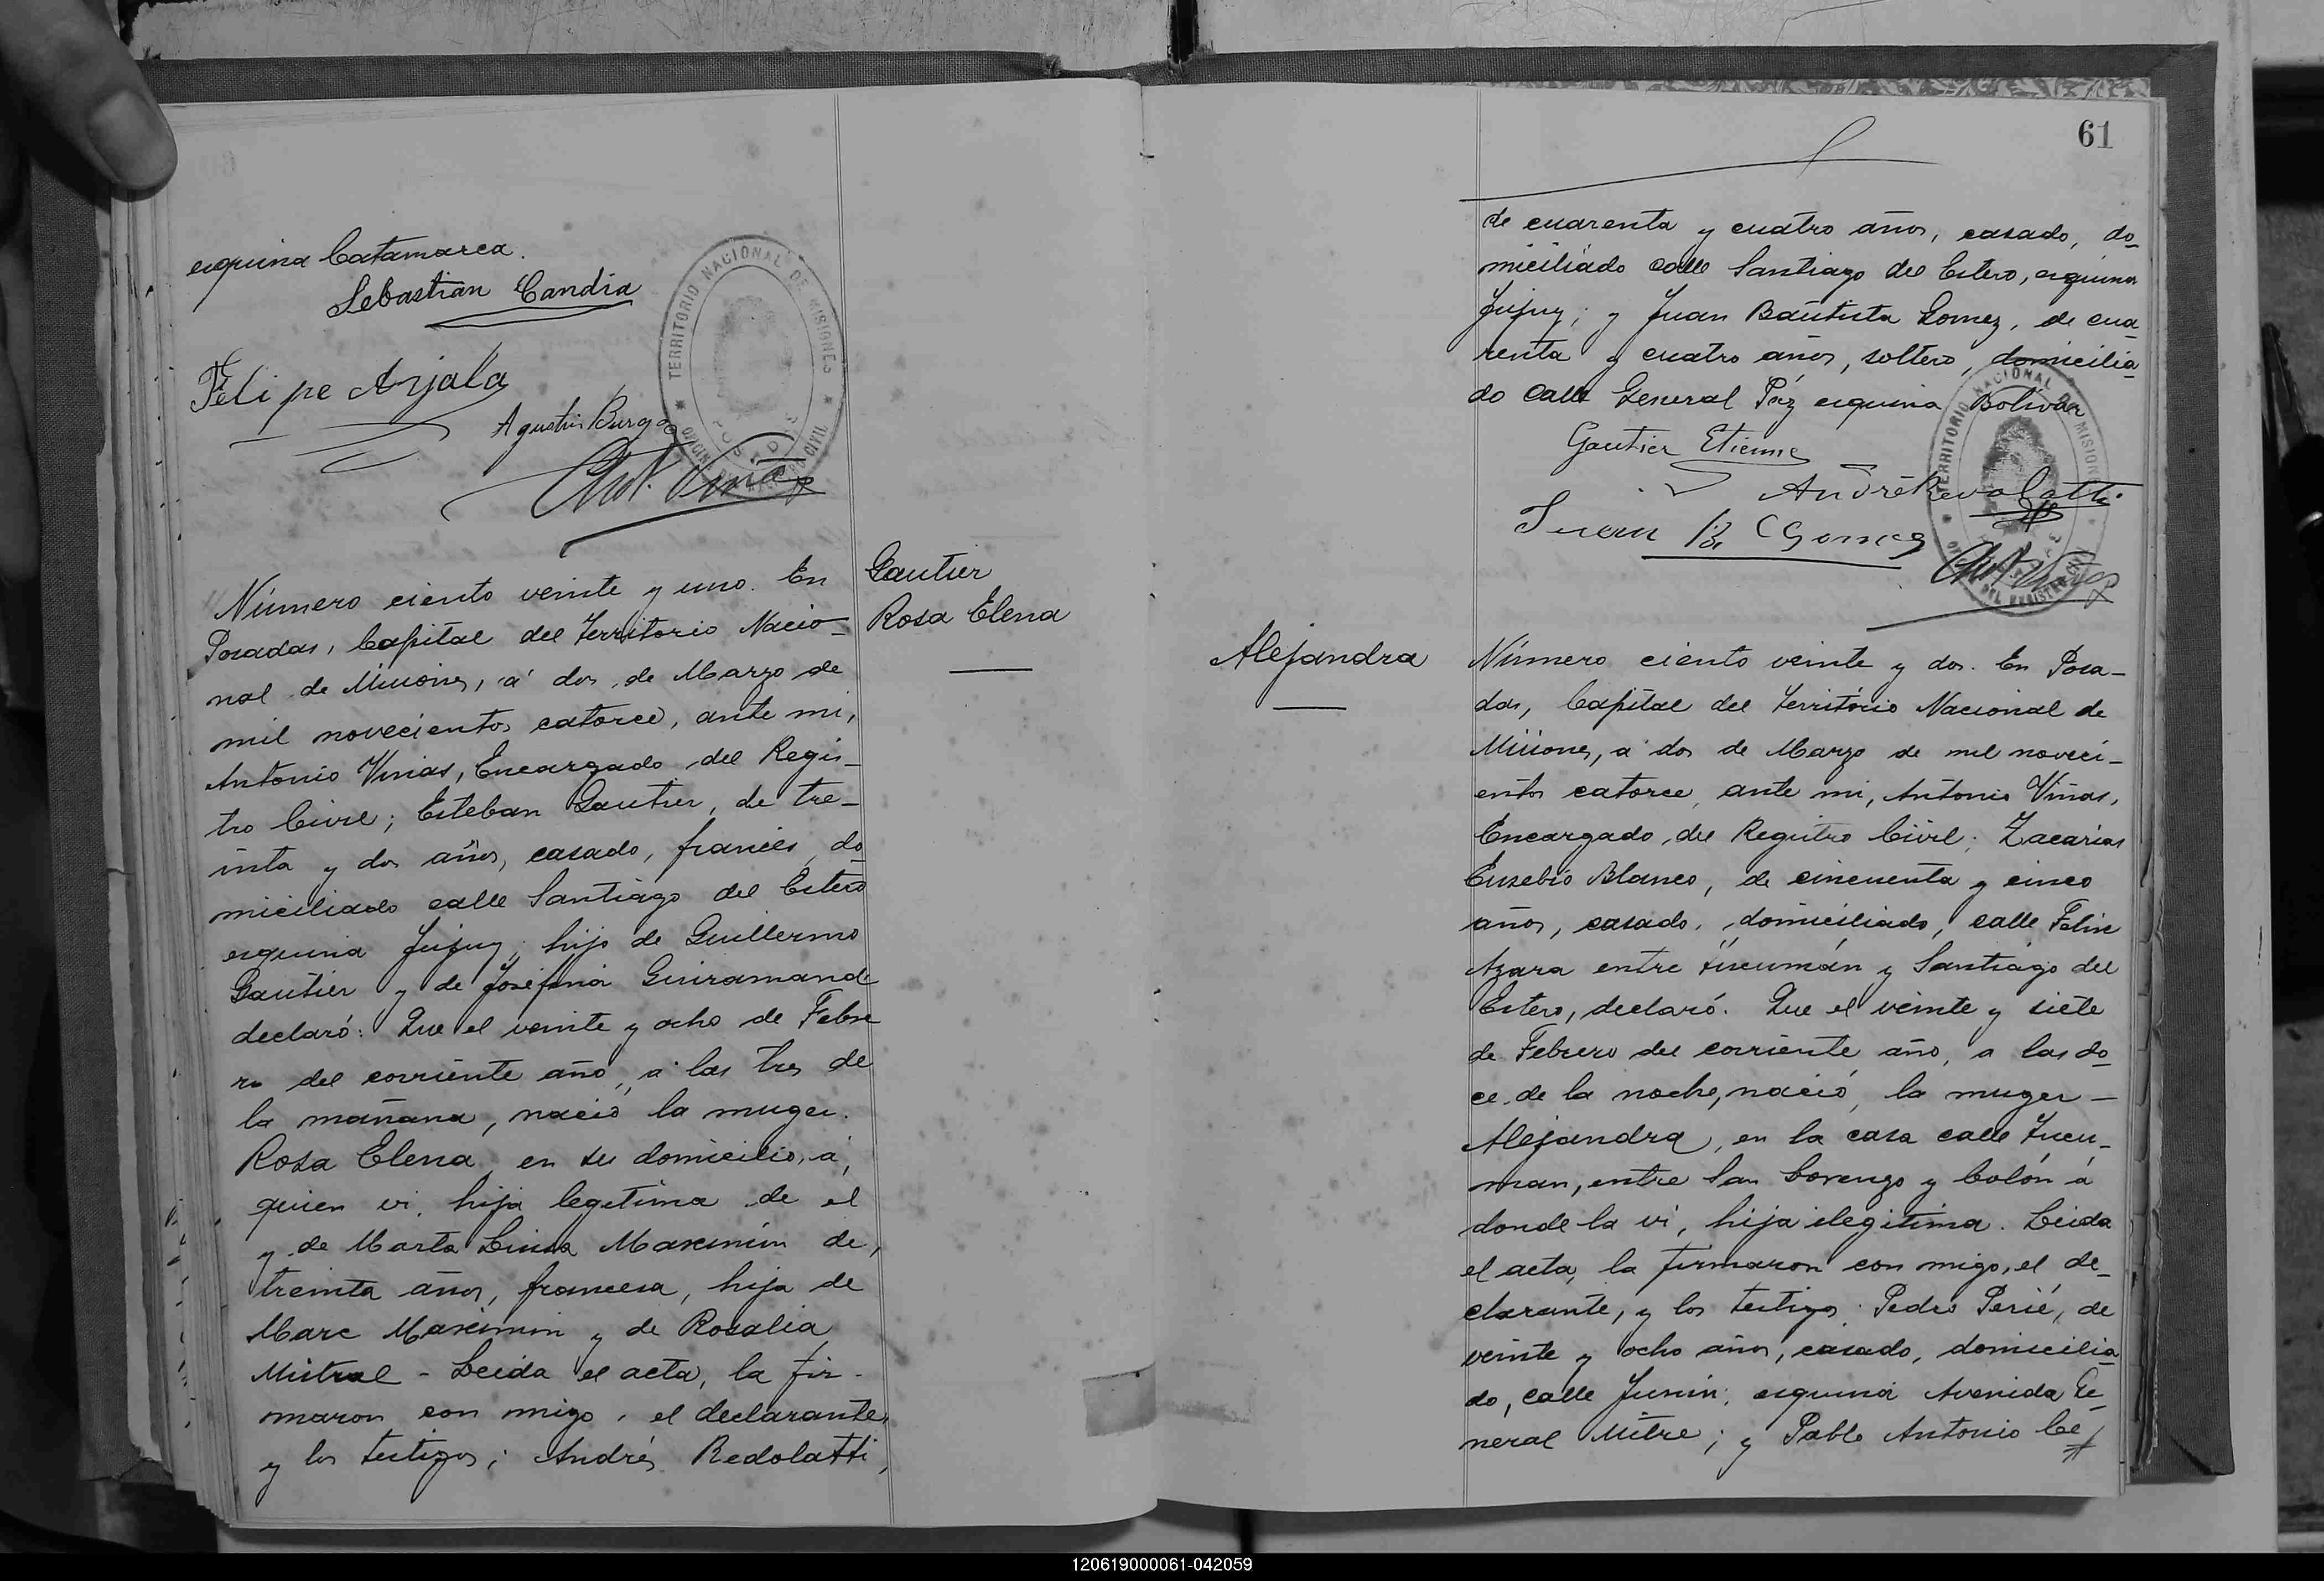 esquina Catamarca.
Sebastian Candia
Felipe Arjala
Agustin Burgo
Ant. Viñas
TERRITORIO NACIONAL DE MISIONES
REGISTRO CIVIL
Gautier
Rosa Elena
Número ciento veinte y uno. En
Posadas, Capital del Territorio Nacio-
nal de Misiones, á dos de Marzo de
mil novecientos catorce, ante mi,
Antonio Viñas, Encargado del Regis-
tro Civil; Esteban Gautier, de tre-
inta y dos años, casado, francés, do-
miciliado calle Santiago del Estero
esquina Jujuy; hijo de Guillermo
Gautier y de Josefina Guiramand
declaró: Que el veinte y ocho de Febre
ro del corriente año, á las tres de
la mañana, nació la muger.
Rosa Elena, en su domicilio, á,
quien vi, hija legitima de el
y de Marta Luisa Maximin de,
treinta años, francesa, hija de
Marc Maximin y de Rosalia
Mistral - Leida el acta, la fir-
maron con migo, el declarante,
y los testigos; Andrés Redolatti,
61
de cuarenta y cuatro años, casado, do-
miciliado calle Santiago del Estero, esquina
Jujuy; y Juan Bautista Gomez, de cua
renta y cuatro años, soltero, domicilia-
do calle General Páz esquina Bolívar
Gautier Etienne
André Revolatti
Juan B. Gomez
Ant. Viñas
TERRITORIO NACIONAL MISIONES
DEL REGISTRO
Alejandra
Número ciento veinte y dos. En Posa-
das, Capital del Territorio Nacional de
Misiones, a dos de Marzo de mil noveci-
entos catorce, ante mi, Antonio Viñas,
Encargado del Registro Civil; Zacarías
Eusebio Blanco, de cincuenta y cinco
años, casado, domiciliado, calle Felix
Azara entre Tucumán y Santiago del
Estero, declaró. Que el veinte y siete
de Febrero del corriente año, a las do-
ce de la noche, nació, la muger -
Alejandra, en la casa calle Tucu-
man, entre San Lorenzo y Colón á
donde la vi, hija ilegitima. Leida
el acta, la firmaron con migo, el de-
clarante, y los testigos: Pedro Perié, de
veinte y ocho años, casado, domicilia
do, calle Junin; esquina Avenida Ge-
neral Mitre; y Pablo Antonio Ce
120619000061-042059